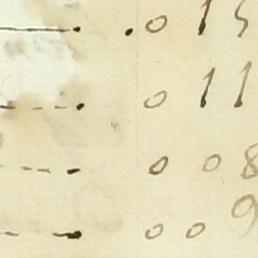 . 0 15
0 11
0 08
0 0 9